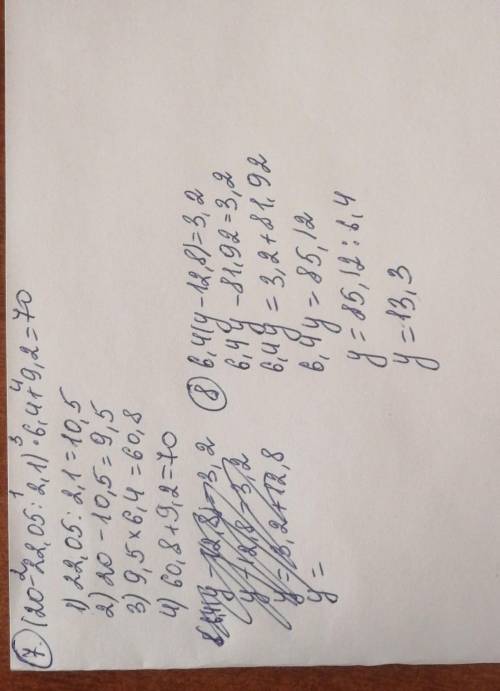 7. (20-22,05:2,1)·6,4+9,2=70
2 1 3 4
1) 22,05:2,1=10,5
2) 20-10,5=9,5
3) 9,5×6,4=60,8
4) 60,8+9,2=70
y+12,8=3,2
y=3,2+12,8
y=
8 6,4(y-12,8)=3,2
6,4y-81,92=3,2
6,4y=3,2+81,92
6,4y=85,12
y=85,12:6,4
y=13,3